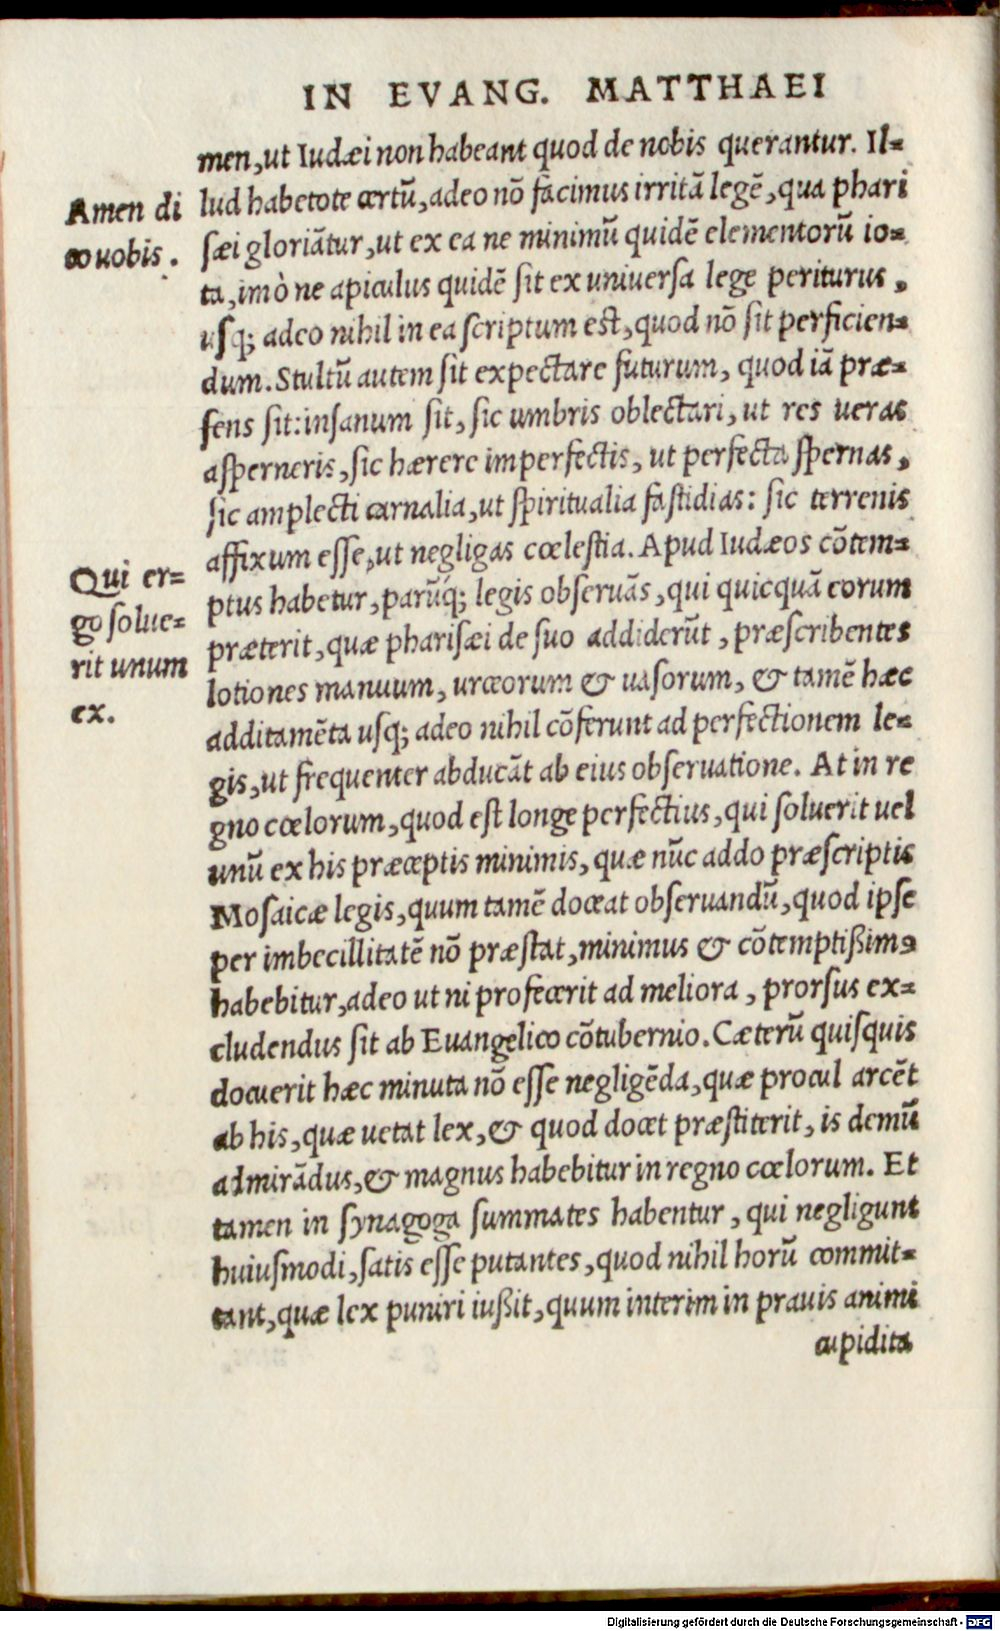 IN EVANG. MATTHAEI
men, ut Iudæi non habeant quod de nobis querantur. Il-
Amen di
lud habetote certũ, adeo nõ facimus irritã legẽ, qua phari
co uobis.
sæi gloriãtur, ut ex ea ne minimũ quidẽ elementorũ io-
ta, imò ne apiculus quidẽ sit ex uniuersa lege periturus,
usq; adeo nihil in ea scriptum est, quod nõ sit perficien-
dum. Stultũ autem sit expectare futurum, quod iã præ-
sens sit: insanum sit, sic umbris oblectari, ut res ueras
asperneris, sic hærere imperfectis, ut perfecta spernas,
sic amplecti carnalia, ut spiritualia fastidias: sic terrenis
affixum esse, ut negligas cœlestia. Apud Iudæos cõtem-
Qui er-
ptus habetur, parũq́; legis obseruãs, qui quicquã eorum
go solue-
præterit, quæ pharisæi de suo addiderũt, præscribentes
rit unum
lotiones manuum, urceorum & uasorum, & tamẽ hæc
ex.
additamẽta usq; adeo nihil cõferunt ad perfectionem le-
gis, ut frequenter abducãt ab eius obseruatione. At in re
gno cœlorum, quod est longe perfectius, qui soluerit uel
unũ ex his præceptis minimis, quæ nũc addo præscriptis
Mosaicæ legis, quum tamẽ doceat obseruandũ, quod ipse
per imbecillitatẽ nõ præstat, minimus & cõtemptißimꝰ
habebitur, adeo ut ni profecerit ad meliora, prorsus ex-
cludendus sit ab Euangelico cõtubernio. Cæterũ quisquis
docuerit hæc minuta nõ esse negligẽda, quæ procul arcẽt
ab his, quæ uetat lex, & quod docet præstiterit, is demũ
admirãdus, & magnus habebitur in regno cœlorum. Et
tamen in synagoga summates habentur, qui negligunt
huiusmodi, satis esse putantes, quod nihil horũ commit-
tant, quæ lex puniri iußit, quum interim in prauis animi
cupidita
Digitalisierung gefördert durch die Deutsche Forschungsgemeinschaft - DFG